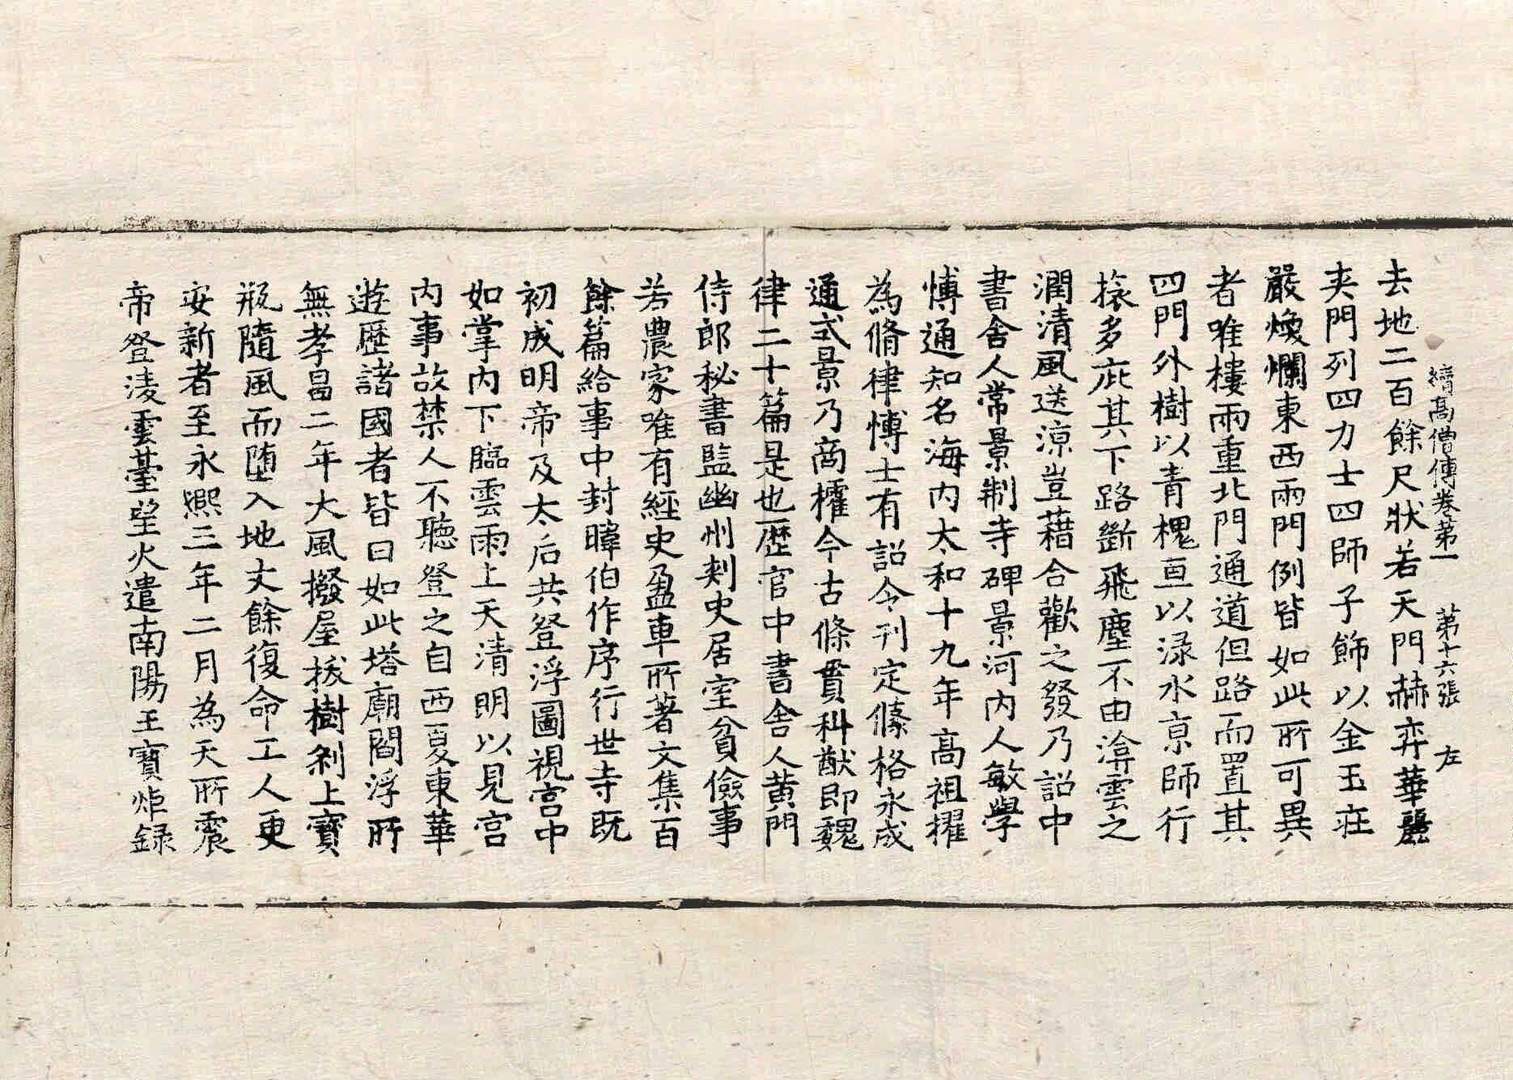 續高僧傳卷第一 第十六張 左
去地二百餘尺狀若天門赫弈華麗
夹門列四力士四師子飾以金玉莊
嚴煥爛東西兩門例皆如此所可異
者唯樓兩重北門通道但路而置其
四門外樹以青槐亘以渌水京師行
旅多庇其下路斷飛塵不由渰雲之
潤清風送涼豈藉合歡之發乃詔中
書舍人常景制寺碑景河内人敏學
博通知名海内太和十九年高祖擢
為脩律博士有詔令刊定條格永成
通式景乃商榷今古條貫科猷即魏
律二十篇是也歷官中書舍人黄門
侍郎秘書監幽州刾史居室貧儉事
若農家唯有經史盈車所著文集百
餘篇給事中封暐伯作序行世寺既
初成明帝及太后共登浮圖視宫中
如掌内下臨雲雨上天清明以見宫
内事故禁人不聽登之自西夏東華
遊歷諸國者皆曰如此塔廟閻浮所
無孝昌二年大風撥屋拔樹刹上寳
瓶隨風而堕入地丈餘復命工人更
安新者至永熙三年二月為天所震
帝登淩雲臺望火遣南陽王寳炬録